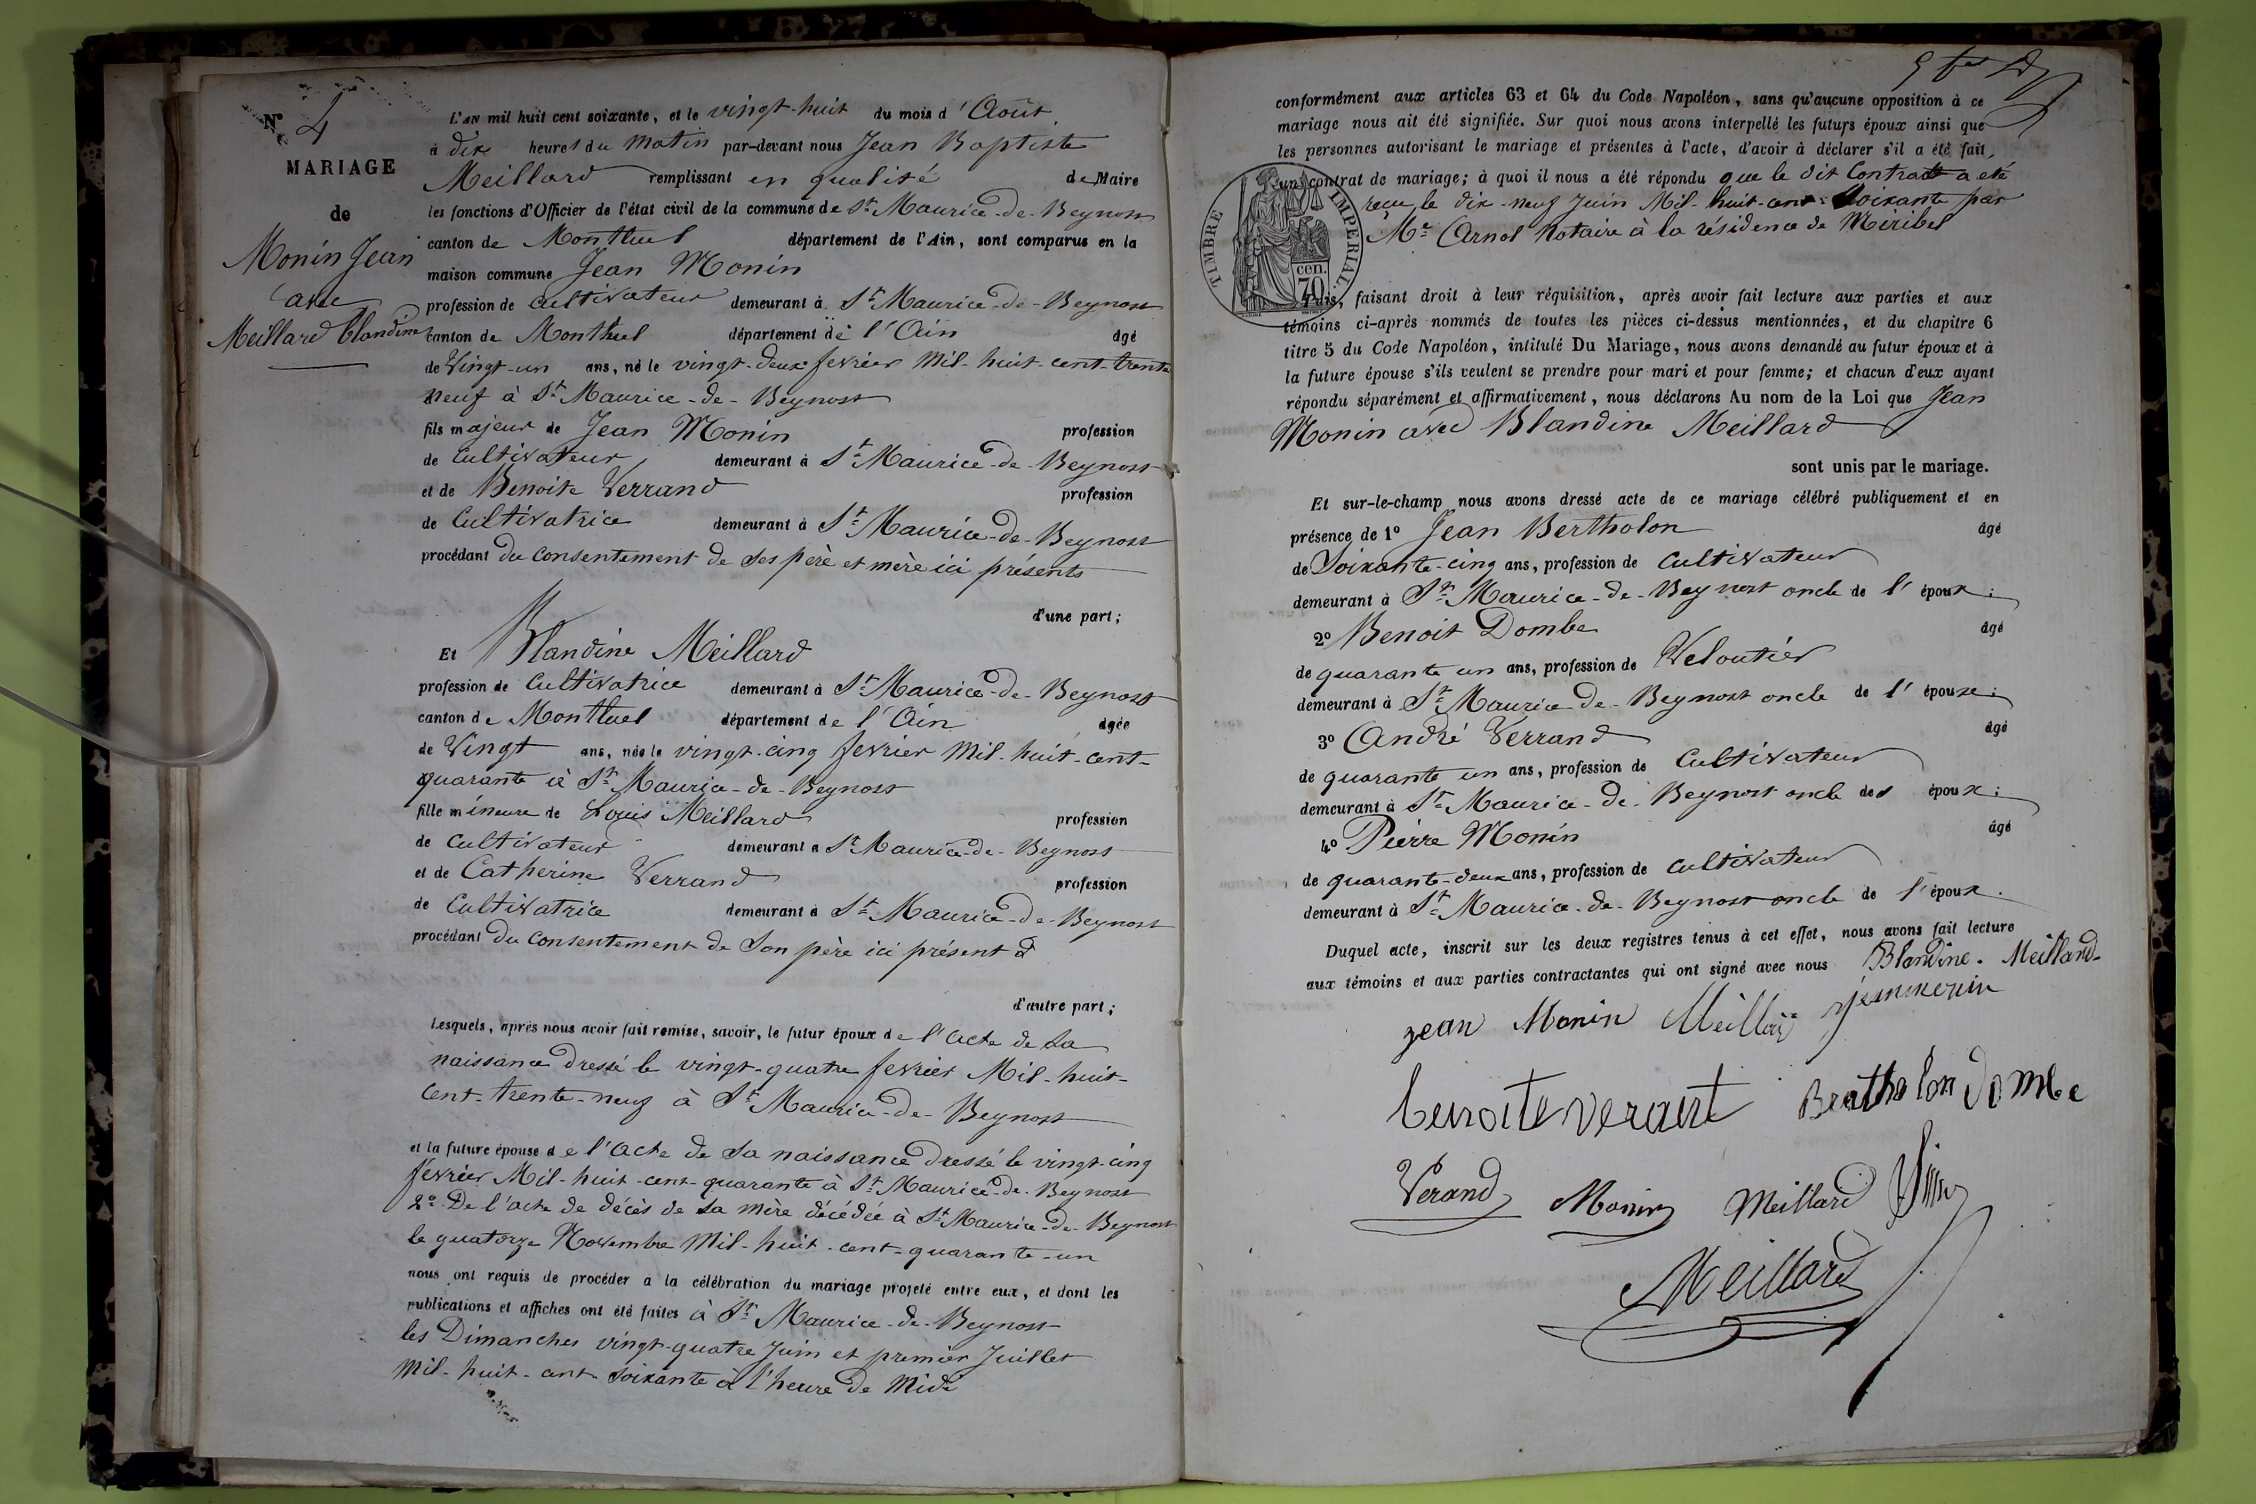 N° 4
MARIAGE
de
Monin Jean
avec
Meillard Blandine
L'an mil huit cent soixante, et le vingt-huit du mois d'Août
à dix heures du matin par-devant nous Jean Baptiste
Meillard remplissant en qualité de Maire
les fonctions d'Officier de l'état civil de la commune de St Maurice-de-Beynost
canton de Montluel département de l'Ain, sont comparus en la
maison commune Jean Monin
profession de cultivateur demeurant à St Maurice-de-Beynost
canton de Montluel département de l'Ain âgé
de Vingt-un ans, né le vingt-deux fevrier Mil-huit-cent-trente
neuf à St Maurice-de-Beynost
fils majeur de Jean Monin profession
de Cultivateur demeurant à St Maurice-de-Beynost
et de Benoite Verrand profession
de Cultivatrice demeurant à St Maurice-de-Beynost
procédant du consentement de ses père et mère ici présents
d'une part;
Et Blandine Meillard
profession de Cultivatrice demeurant à St Maurice-de-Beynost
canton de Montluel département de l'Ain âgée
de Vingt ans, née le vingt-cinq fevrier Mil-huit-cent-
quarante à St Maurice-de-Beynost
fille mineure de Louis Meillard profession
de Cultivateur demeurant à St Maurice-de-Beynost
et de Catherine Verrand profession
de Cultivatrice demeurant à St Maurice-de-Beynost
procédant du consentement de son père ici présent
d'autre part;
Lesquels, après nous avoir fait remise, savoir, le futur époux de l'acte de sa
naissance dressé le vingt-quatre fevrier Mil-huit-
cent-trente-neuf à St Maurice-de-Beynost
et la future épouse de l'acte de sa naissance dressé le vingt-cinq
fevrier Mil-huit-cent-quarante à St Maurice-de-Beynost
2° De l'acte de décès de sa mère décédée à St Maurice-de-Beynost
le quatorze Novembre Mil-huit-cent-quarante-un
nous ont requis de procéder à la célébration du mariage projeté entre eux, et dont les
publications et affiches ont été faites à St Maurice-de-Beynost
les Dimanches vingt-quatre Juin et premier Juillet
Mil-huit-cent soixante à l'heure de Midi
conformément aux articles 63 et 64 du Code Napoléon, sans qu'aucune opposition à ce
mariage nous ait été signifiée. Sur quoi nous avons interpellé les futurs époux ainsi que
les personnes autorisant le mariage et présentes à l'acte, d'avoir à déclarer s'il a été fait
un contrat de mariage; à quoi il nous a été répondu que le dit Contrat a été
recu le dix-neuf Juin Mil-huit-cent-Soixante par
Me Carnol Notaire à la résidence de Miribel
TIMBRE IMPERIAL
70 cen.
Puis, faisant droit à leur réquisition, après avoir fait lecture aux parties et aux
témoins ci-après nommés de toutes les pièces ci-dessus mentionnées, et du chapitre 6
titre 5 du Code Napoléon, intitulé Du Mariage, nous avons demandé au futur époux et à
la future épouse s'ils veulent se prendre pour mari et pour femme; et chacun d'eux ayant
répondu séparément et affirmativement, nous déclarons Au nom de la Loi que Jean
Monin avec Blandine Meillard
sont unis par le mariage.
Et sur-le-champ nous avons dressé acte de ce mariage célébré publiquement et en
présence de 1° Jean Bertholon âgé
de Soixante-cinq ans, profession de Cultivateur
demeurant à St Maurice-de-Beynost oncle de l'époux;
2° Benoit Dombe âgé
de quarante un ans, profession de Veloutier
demeurant à St Maurice-de-Beynost oncle de l'épouse;
3° André Verrand âgé
de quarante un ans, profession de Cultivateur
demeurant à St Maurice-de-Beynost oncle des époux;
4° Pierre Monin âgé
de quarante-deux ans, profession de Cultivateur
demeurant à St Maurice-de-Beynost oncle de l'époux.
Duquel acte, inscrit sur les deux registres tenus à cet effet, nous avons fait lecture
aux témoins et aux parties contractantes qui ont signé avec nous Blandine. Meillard
jean Monin Meillard jean monin
benoite verant Bertholon dombe
Verand Monin Meillard
Meillard